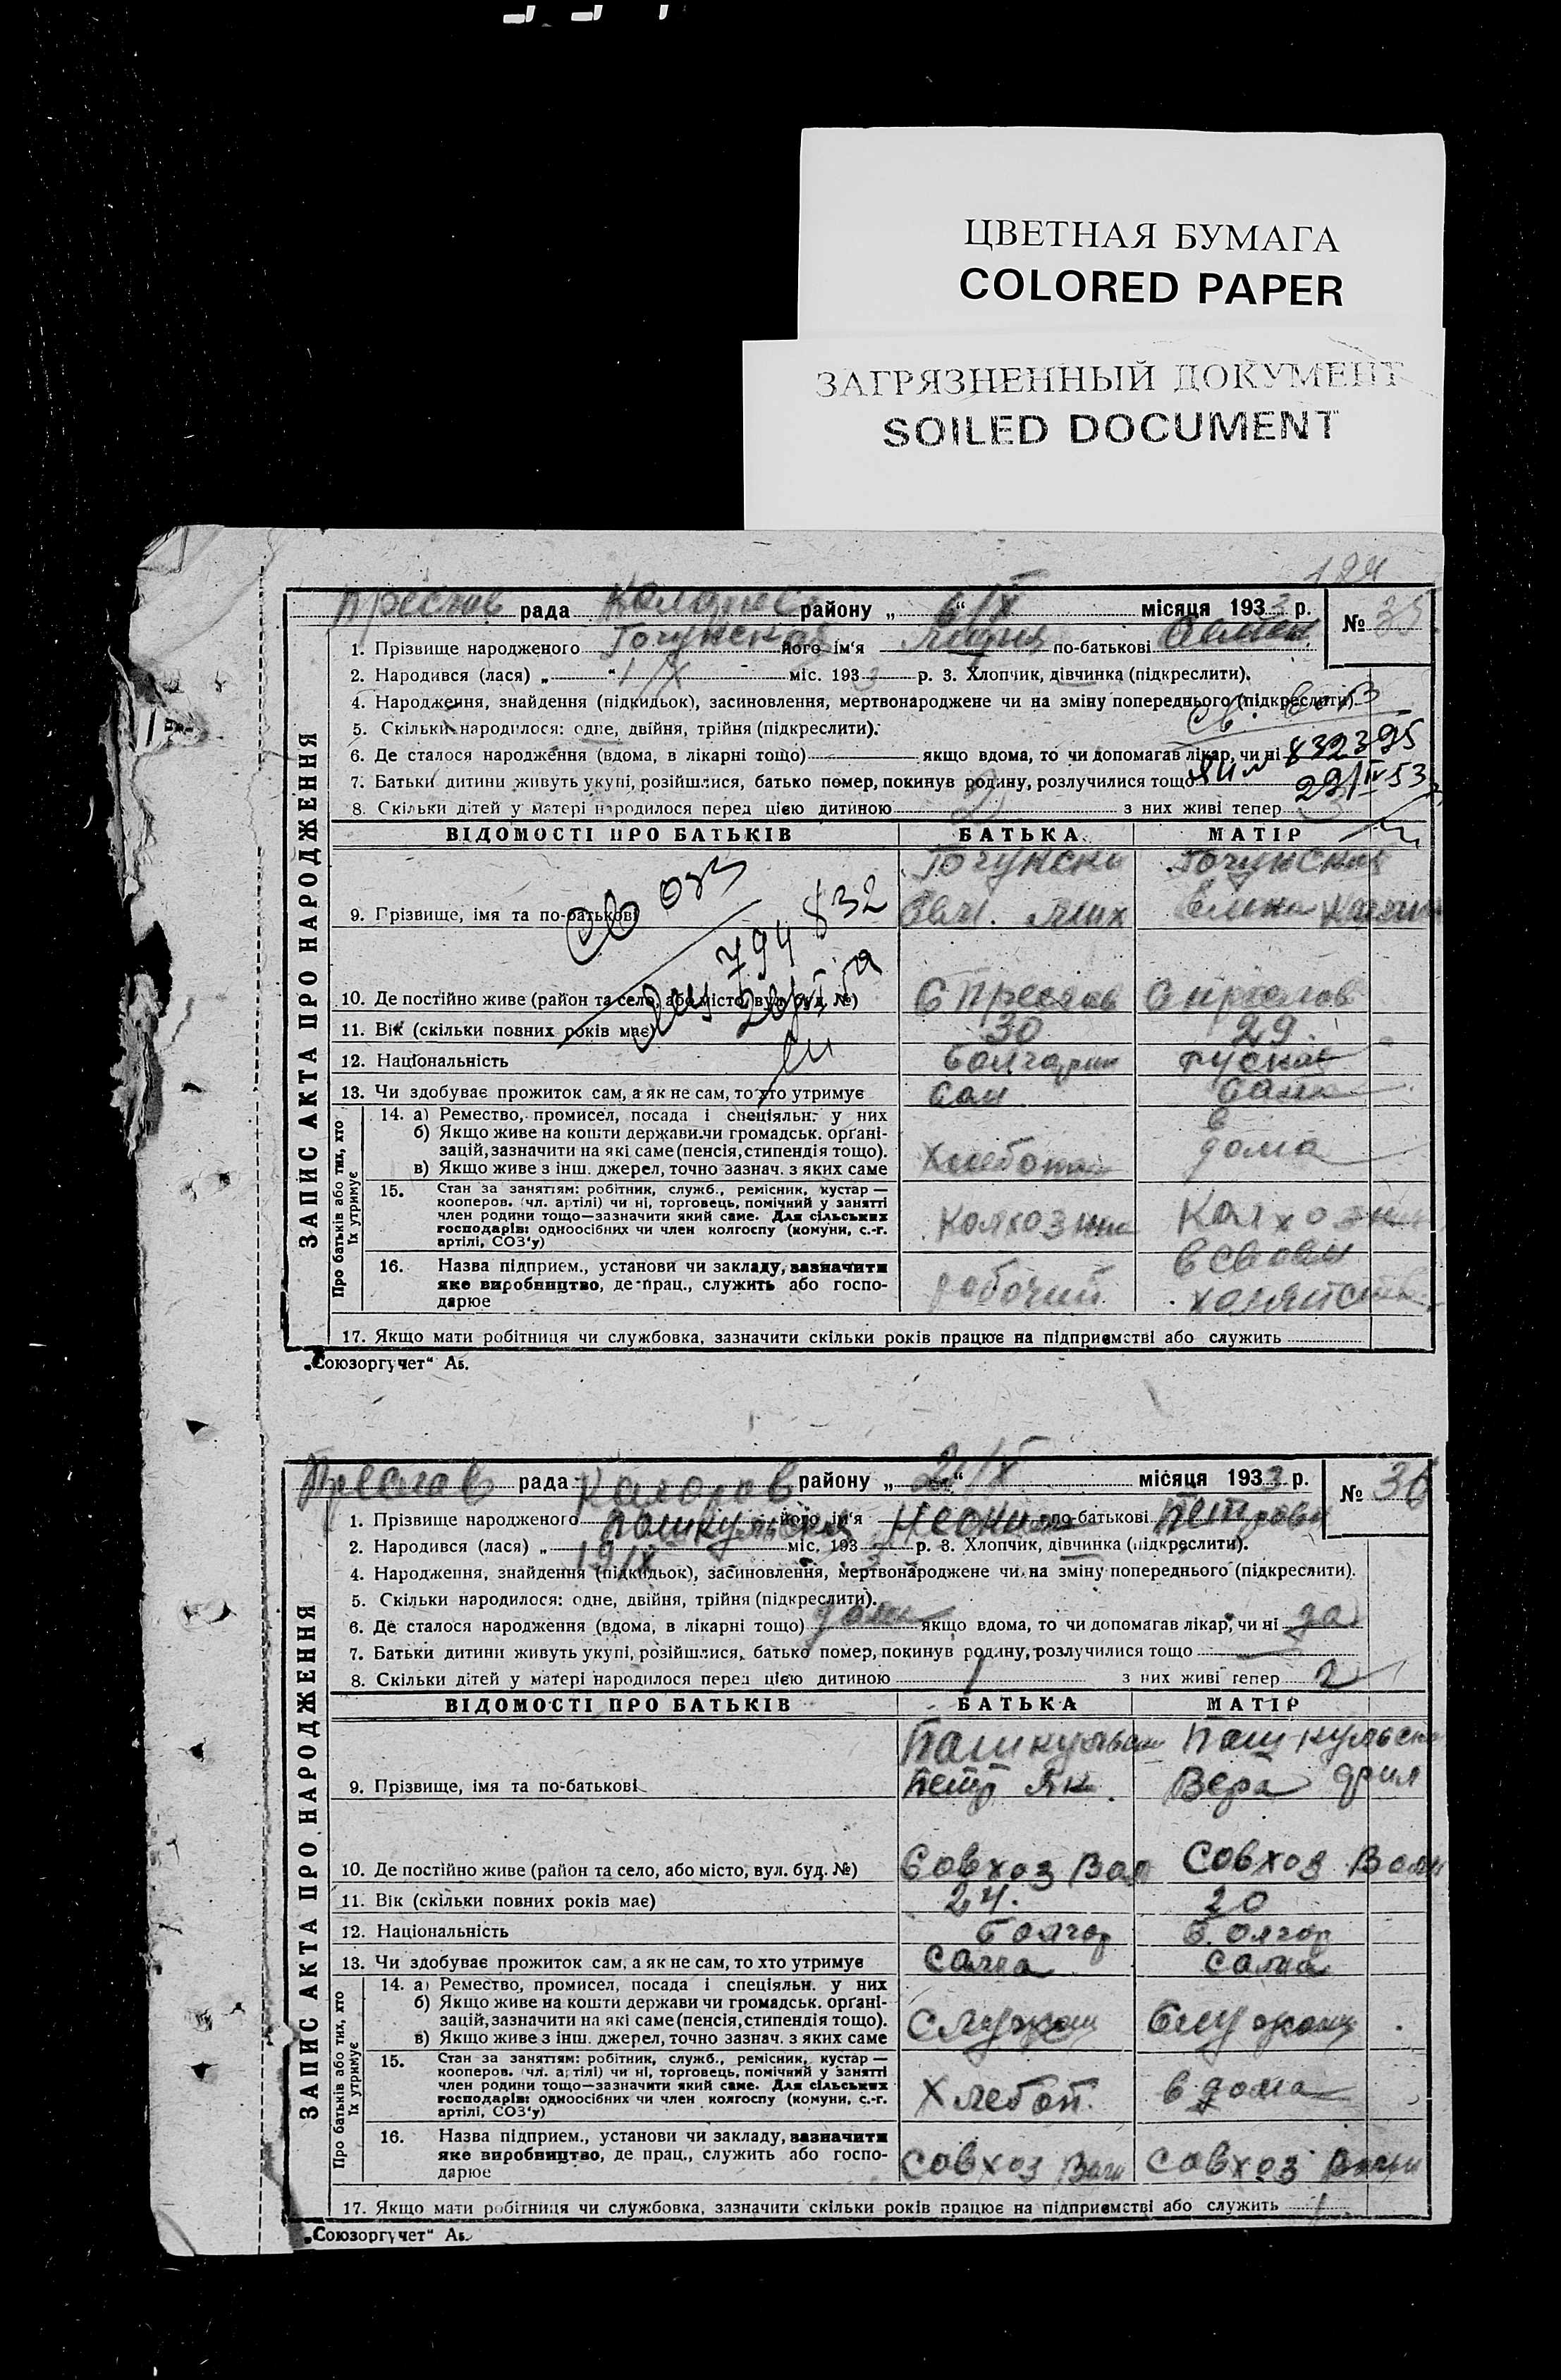 ЦВЕТНАЯ БУМАГА
COLORED PAPER
ЗАГРЯЗНЕННЫЙ ДОКУМЕНТ
SOILED DOCUMENT
ЗАПИС АКТА ПРО НАРОДЖЕННЯ
Преслав рада района „ 6/IX “ місяця 1933 р. № 35
1. Прізвище народженого Гочунская його ім'я по-батькові
2. Народився (лася) „ 1/X “ міс. 1933 р. 3. Хлопчик, дівчинка (підкреслити).
4. Народження, знайдення (підкидьок), засиновлення, мертвонароджене чи на зміну попереднього (підкреслити).
5. Скільки народилося: одне, двійня, трійня (підкреслити).
6. Де сталося народження (вдома, в лікарні тощо) якщо вдома, то чи допомагав лікар, чи ні
832395
7. Батьки дитини живуть укупі, розійшлися, батько помер, покинув родину, розлучилися тощо
29/IV 53
8. Скільки дітей у матері народилося перед цією дитиною 2 з них живі тепер 3
ВІДОМОСТІ ПРО БАТЬКІВ БАТЬКА МАТІР
9. Прізвище, імя та по-батькові Гочунски Гочунская
794832
10. Де постійно живе (район та село, або місто, вул. буд. №) С Преслав С Преслав
11. Вік (скільки повних років має) 30 29
12. Національність Болгарин руская
13. Чи здобуває прожиток сам, а як не сам, то хто утримує Сам Сама
Про батьків або тих, хто їх утримує
14. а) Ремество, промисел, посада і спеціяльн. у них
б) Якщо живе на кошти держави чи громадськ. органі-
зацій, зазначити на які саме (пенсія, стипендія тощо).
в) Якщо живе з інш. джерел, точно зазнач. з яких саме
в дома
15. Стан за заняттям: робітник, служб., ремісник, кустар —
кооперов. (чл. артілі) чи ні, торговець, помічний у занятті
член родини тощо—зазначити який саме. Для сільських
господарів: одноосібних чи член колгоспу (комуни, с.-г.
артілі, СОЗ'у)
Колхозник Колхозни
16. Назва підприєм., установи чи закладу, зазначити
яке виробництво, де прац., служить або госпо-
дарює
рабочий в своем хозяйстве
17. Якщо мати робітниця чи службовка, зазначити скільки років працює на підприємстві або служить
„Союзоргучет“ Аб.
ЗАПИС АКТА ПРО НАРОДЖЕННЯ
Преслав рада Коларов району „ 2/IX “ місяця 1933 р. № 36
1. Прізвище народженого його ім'я по-батькові Петровн
2. Народився (лася) „ 19/IX “ міс. 193 р. 3. Хлопчик, дівчинка (підкреслити).
4. Народження, знайдення (підкидьок), засиновлення, мертвонароджене чи на зміну попереднього (підкреслити).
5. Скільки народилося: одне, двійня, трійня (підкреслити).
6. Де сталося народження (вдома, в лікарні тощо) дома якщо вдома, то чи допомагав лікар, чи ні да
7. Батьки дитини живуть укупі, розійшлися, батько помер, покинув родину, розлучилися тощо
8. Скільки дітей у матері народилося перед цією дитиною 1 з них живі тепер 2
ВІДОМОСТІ ПРО БАТЬКІВ БАТЬКА МАТІР
Пашкульск
9. Прізвище, імя та по-батькові Петр Вера
10. Де постійно живе (район та село, або місто, вул. буд. №) Совхоз Вал Совхоз Валк
11. Вік (скільки повних років має) 24. 20
12. Національність Болгар Болгар
13. Чи здобуває прожиток сам, а як не сам, то хто утримує Сама Сама
Про батьків або тих, хто їх утримує
14. а) Ремество, промисел, посада і спеціяльн. у них
б) Якщо живе на кошти держави чи громадськ. органі-
зацій, зазначити на які саме (пенсія, стипендія тощо).
в) Якщо живе з інш. джерел, точно зазнач. з яких саме
Служащ Служащ
15. Стан за заняттям: робітник, служб., ремісник, кустар —
кооперов. (чл. артілі) чи ні, торговець, помічний у занятті
член родини тощо—зазначити який саме. Для сільських
господарів: одноосібних чи член колгоспу (комуни, с.-г.
артілі, СОЗ'у)
Хлебоп. в дома
16. Назва підприєм., установи чи закладу, зазначити
яке виробництво, де прац., служить або госпо-
дарює
Совхоз Совхоз
17. Якщо мати робітниця чи службовка, зазначити скільки років працює на підприємстві або служить 1
„Союзоргучет“ Аб.